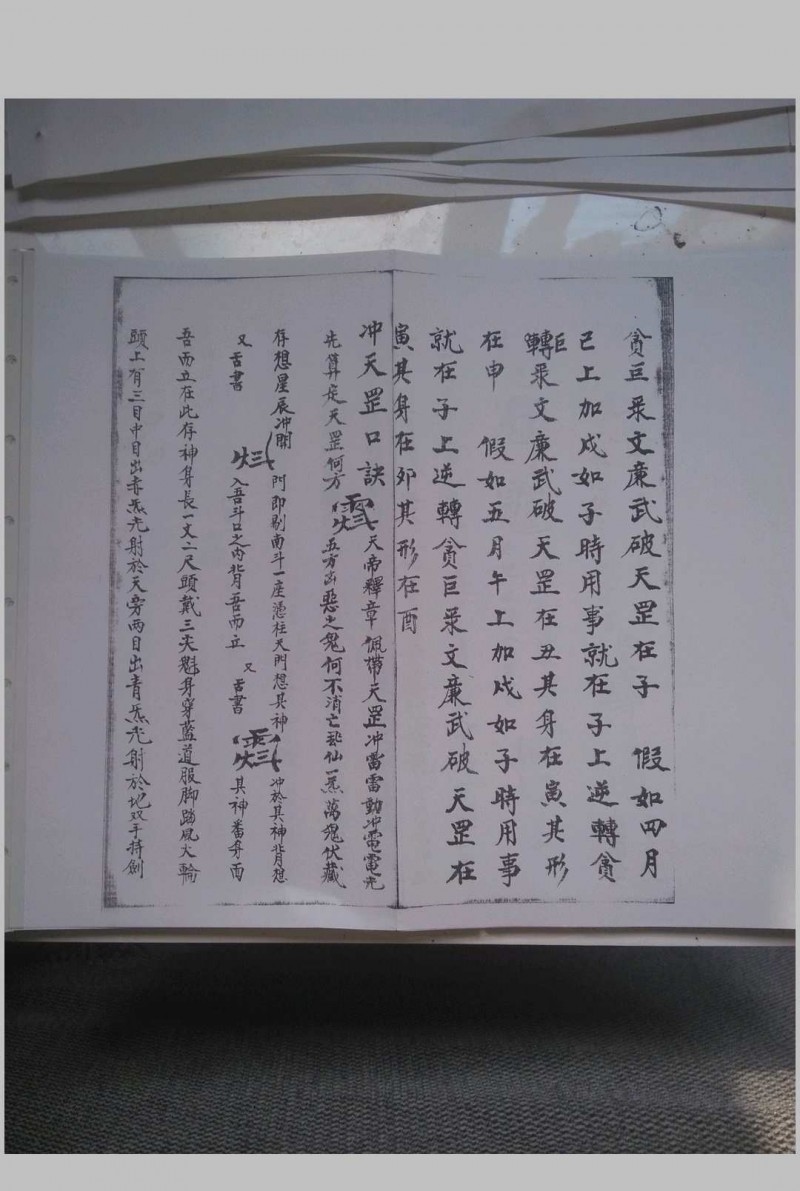 貪巨祿文廉武破天罡在子 假如四月
巳上加戍如子時用事就在子上逆轉貪
巨轉祿文廉武破天罡在丑其身在寅其形
在申 假如五月午上加戍如子時用事
就在子上逆轉貪巨祿文廉武破天罡在
寅其身在卯其形在酉
冲天罡口訣
天帝釋章佩帶天罡冲雷雷動冲電電光
先算定天罡何方 五方凶惡之鬼何不消亡 仙一炁萬鬼伏藏
存想星辰冲開 門即剔南斗一座憑柱天門想其神 冲於其神背想
又舌書 入吾斗口之內背吾而立 又舌書 其神番身而
吾而立在此存神身長一丈二尺頭戴三尖魁身穿藍道服脚踏風火輪
頭上有三目中目出赤炁光射於天旁兩目出青炁光射於地双手持劍